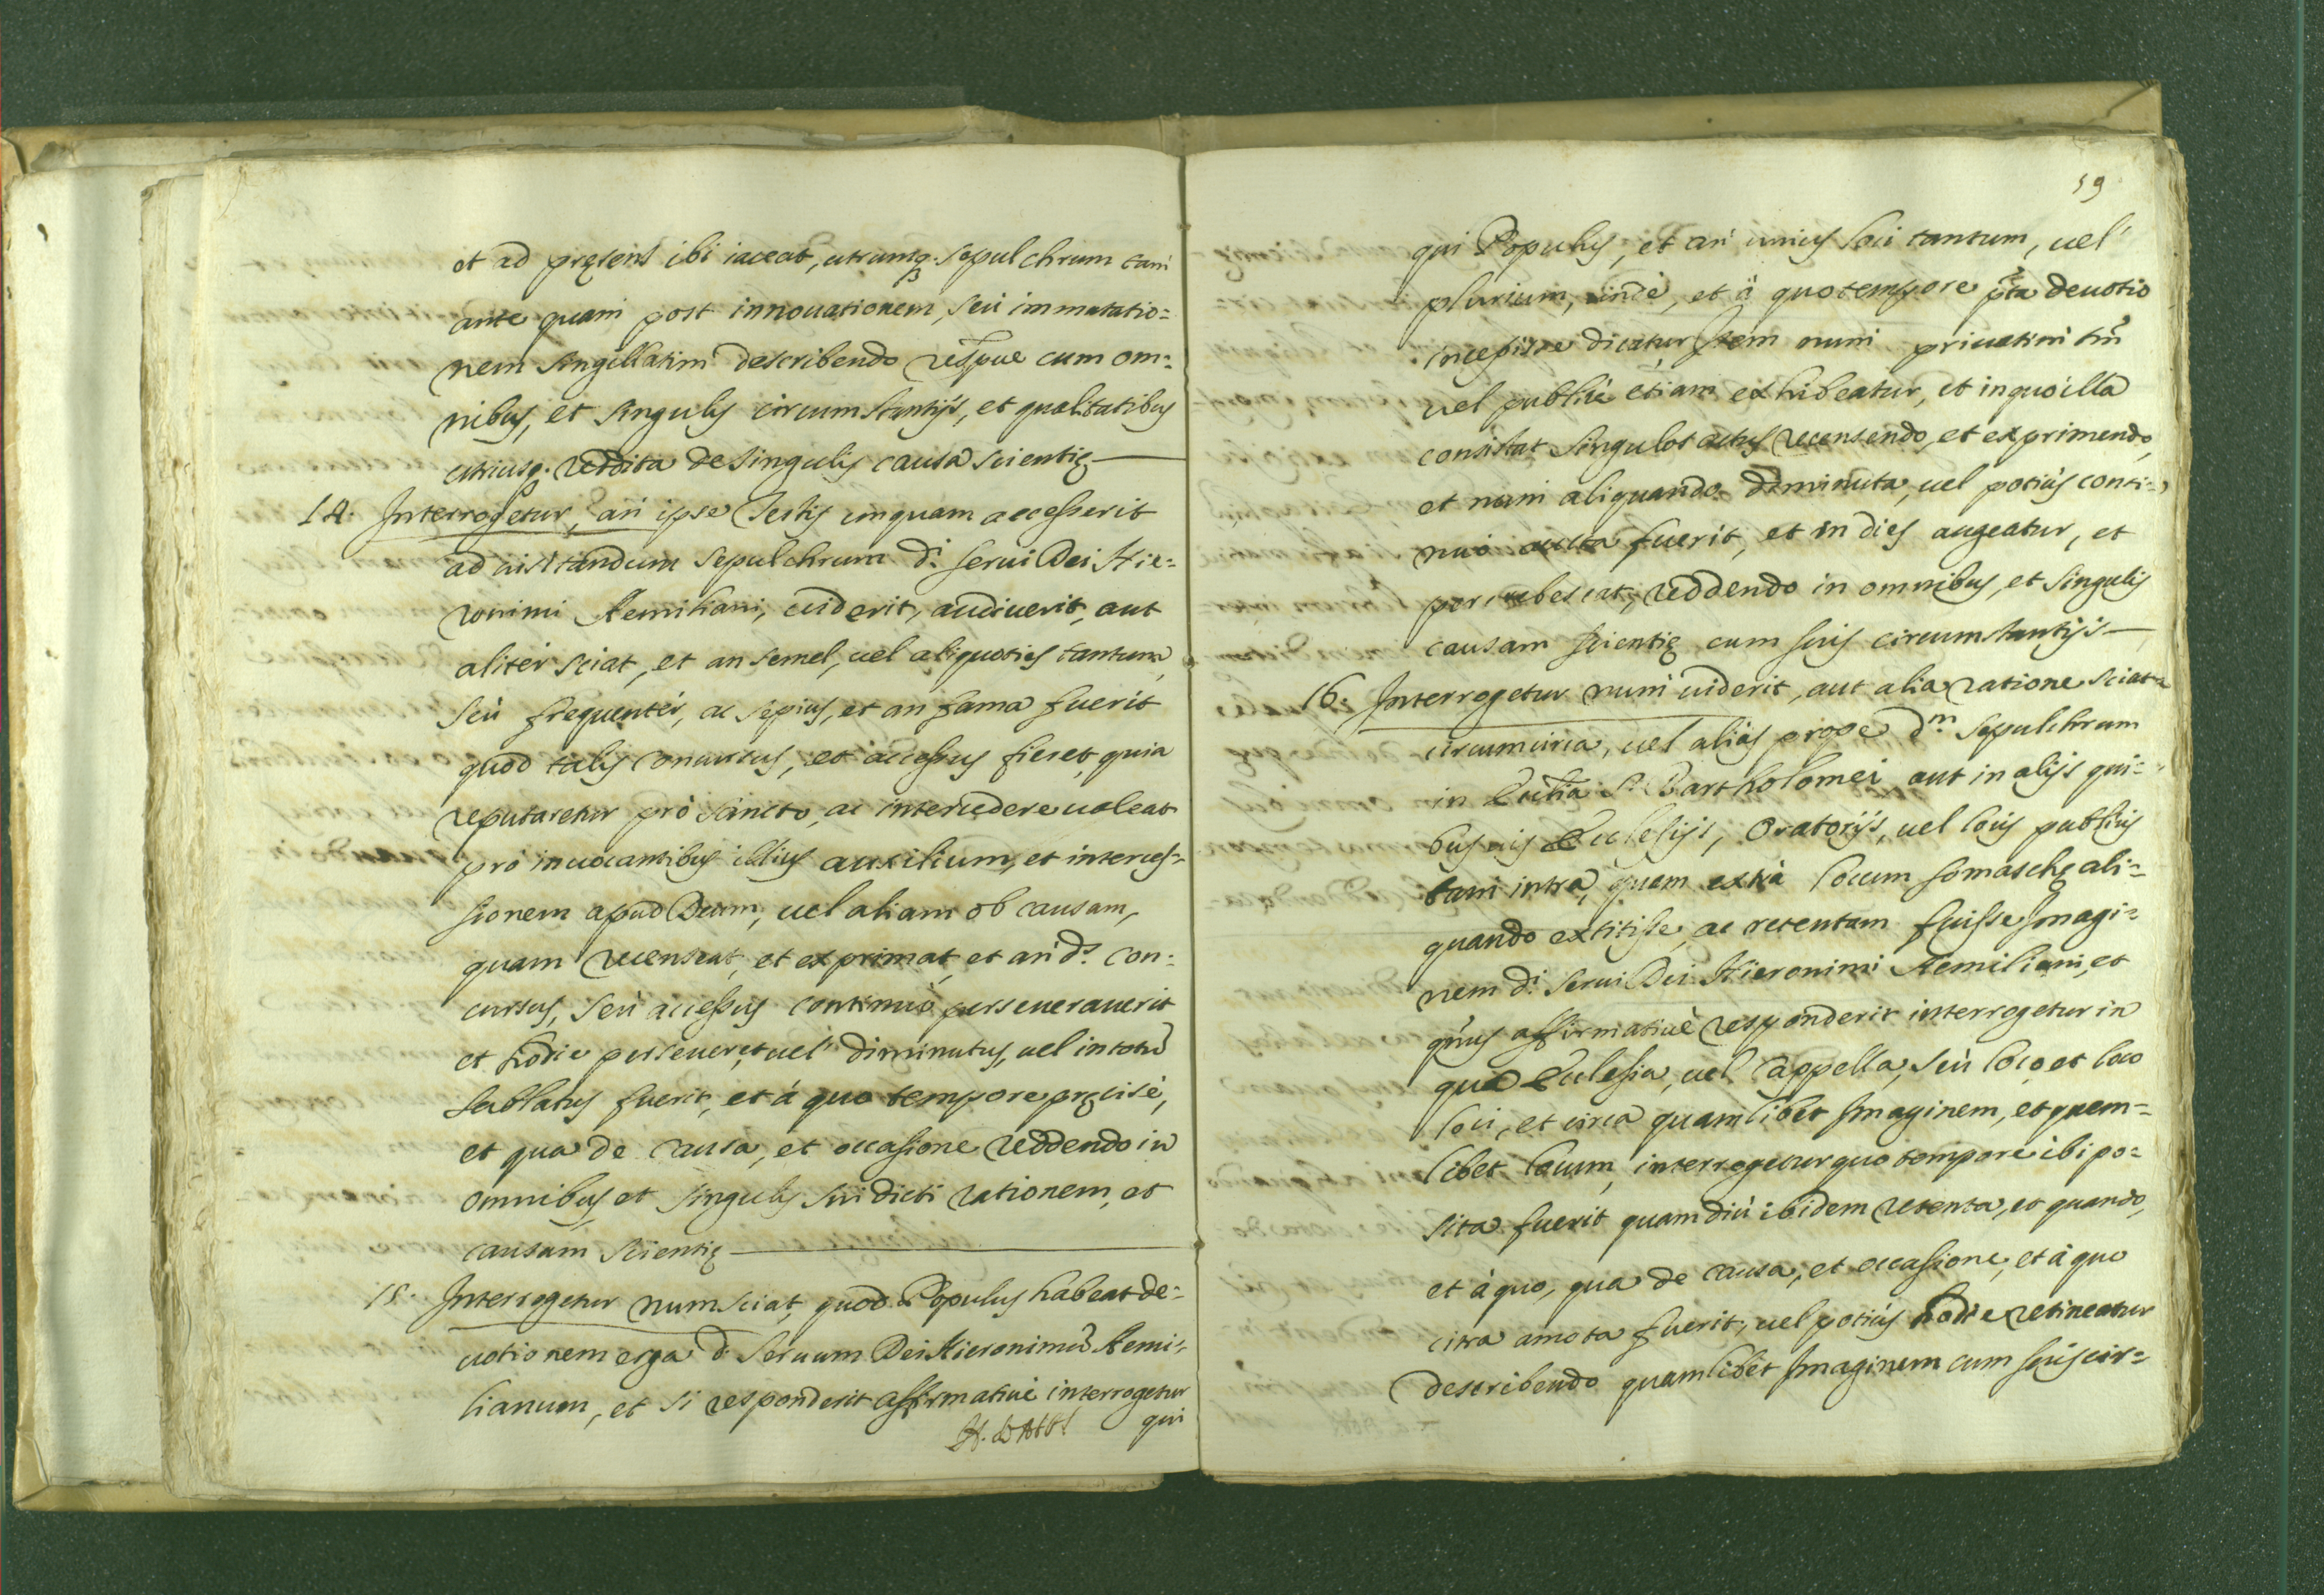 et ad pręsens ibi iaceat, utrumq. sepulchrum tam
ante quam post innouationem, seù immutatio=
nem singillatim describendo respue cum om=
nibus, et singulis circumstantijs, et qualitatibus
utriusq. reddita de singulis causa scientię
14. Interrogetur, an ipse Testis unquam accesserit
ad uisitandum sepulchrum di. serui Dei Hie=
ronimi Aemiliani, uiderit, audiuerit, aut
aliter sciat, et an semel, uel aliquoties tantum,
seù frequentèr, ac sępius, et an fama fuerit
quod talis concursus, et accessus fieret, quia
reputaretur prò sancto, ac intercedere ualeat
prò inuocantibus illius auxilium, et interces=
sionem apud Deum, uel aliam ob causam,
quam recenseat, et exprimat, et an ds. con=
cursus, seù accessus continuò perseuerauerit
et hodie perseueret, uel diminutus, uel in totũ
sublatus fuerit, et à quo tempore pręcisè,
et qua de causa, et occasione reddendo in
omnibus et singulis sui dicti rationem, et
causam scientię
15. Interrogetur num sciat, quod Populus habeat de=
uotionem erga d. Seruum Dei Hieronimũ Aemi=
lianum, et si responderit affirmatiuè interrogetur
qui
59
qui Populus, et an unius loci tantum, uel
plurium, undè, et à quo tempore pta deuotio
incepisse dicatur. Item num priuatim tm̃
uel publicè etiam exhibeatur, et in quo illa
consistat singulos actus recensendo, et exprimendo,
et num aliquando diminuta, uel potiùs conti=
nuò aucta fuerit, et in dies augeatur, et
percrebescat, reddendo in omnibus, et singulis
causam scientię cum suis circumstantijs
16. Interrogetur num uiderit, aut alia ratione sciat
circumcirca, uel aliàs prope dm. sepulchrum
in Ecclia S. Bartholomei aut in alijs qui=
busuis Ecclesijs, Oratorijs, uel locis publicis
tam intrà, quam extrà locum Somaschę ali=
quando extitisse, ac retentam fuisse Imagi=
nem di. Serui Dei Hieronimi Aemiliani, et
quatenus affirmatiuè responderit interrogetur in
qua Ecclesia, uel Cappella, seù loco, et loco
loci, et circa quamlibet Imaginem, et quem=
libet locum, interrogetur quo tempore ibi po=
sita fuerit quamdiù ibidem retenta, et quando,
et à quo, qua de causa, et occasione, et à quo
citra amota fuerit, uel potiùs hodie retineatur
describendo quamlibet Imaginem cum suis cir=